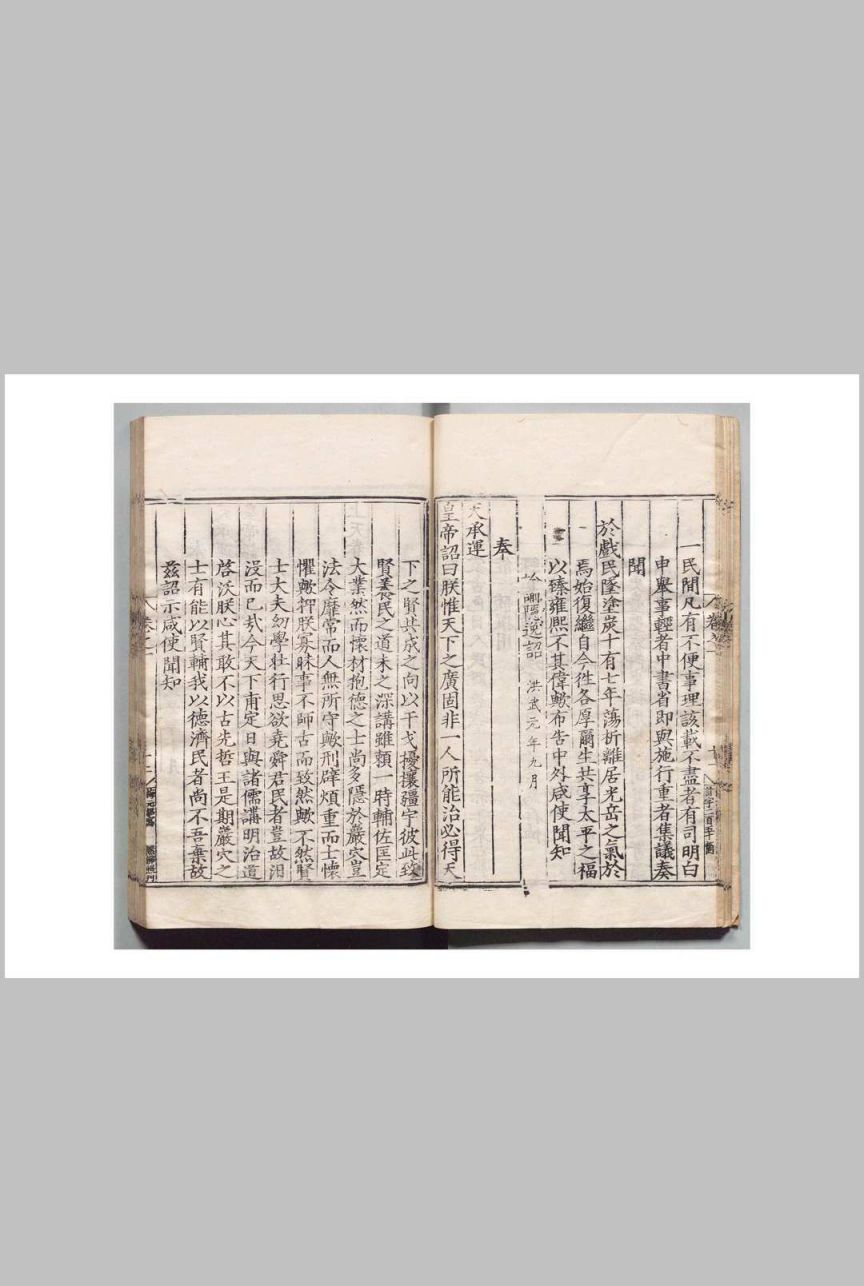 一民間凡有不便事理該載不盡者有司明白
申舉事輕者中書省即與施行重者集議奏
聞
於戲民墜塗炭十有七年蕩析離居光岳之氣於
焉始復繼自今徃各厚爾生共享太平之福
以臻雍熙不其偉歟布告中外咸使聞知
洪武元年九月
奉
天承運
皇帝詔曰朕惟天下之廣固非一人所能治必得天
卷之一
下之賢共成之向以干戈擾攘疆宇彼此致
賢養民之道未之深講雖賴一時輔佐匡定
大業然而懷材抱德之士尚多隱於巖穴豈
法令靡常而人無所守歟刑辟煩重而士懷
懼歟抑朕寡昧事不師古而致然歟不然賢
士大夫幼學壯行思欲堯舜君民者豈故汨
没而已㢤今天下甫定日與諸儒講明治道
啓沃朕心其敢不以古先哲王是期巖穴之
士有能以賢輔我以德濟民者尚不吾棄故
兹詔示咸使聞知
卷之一